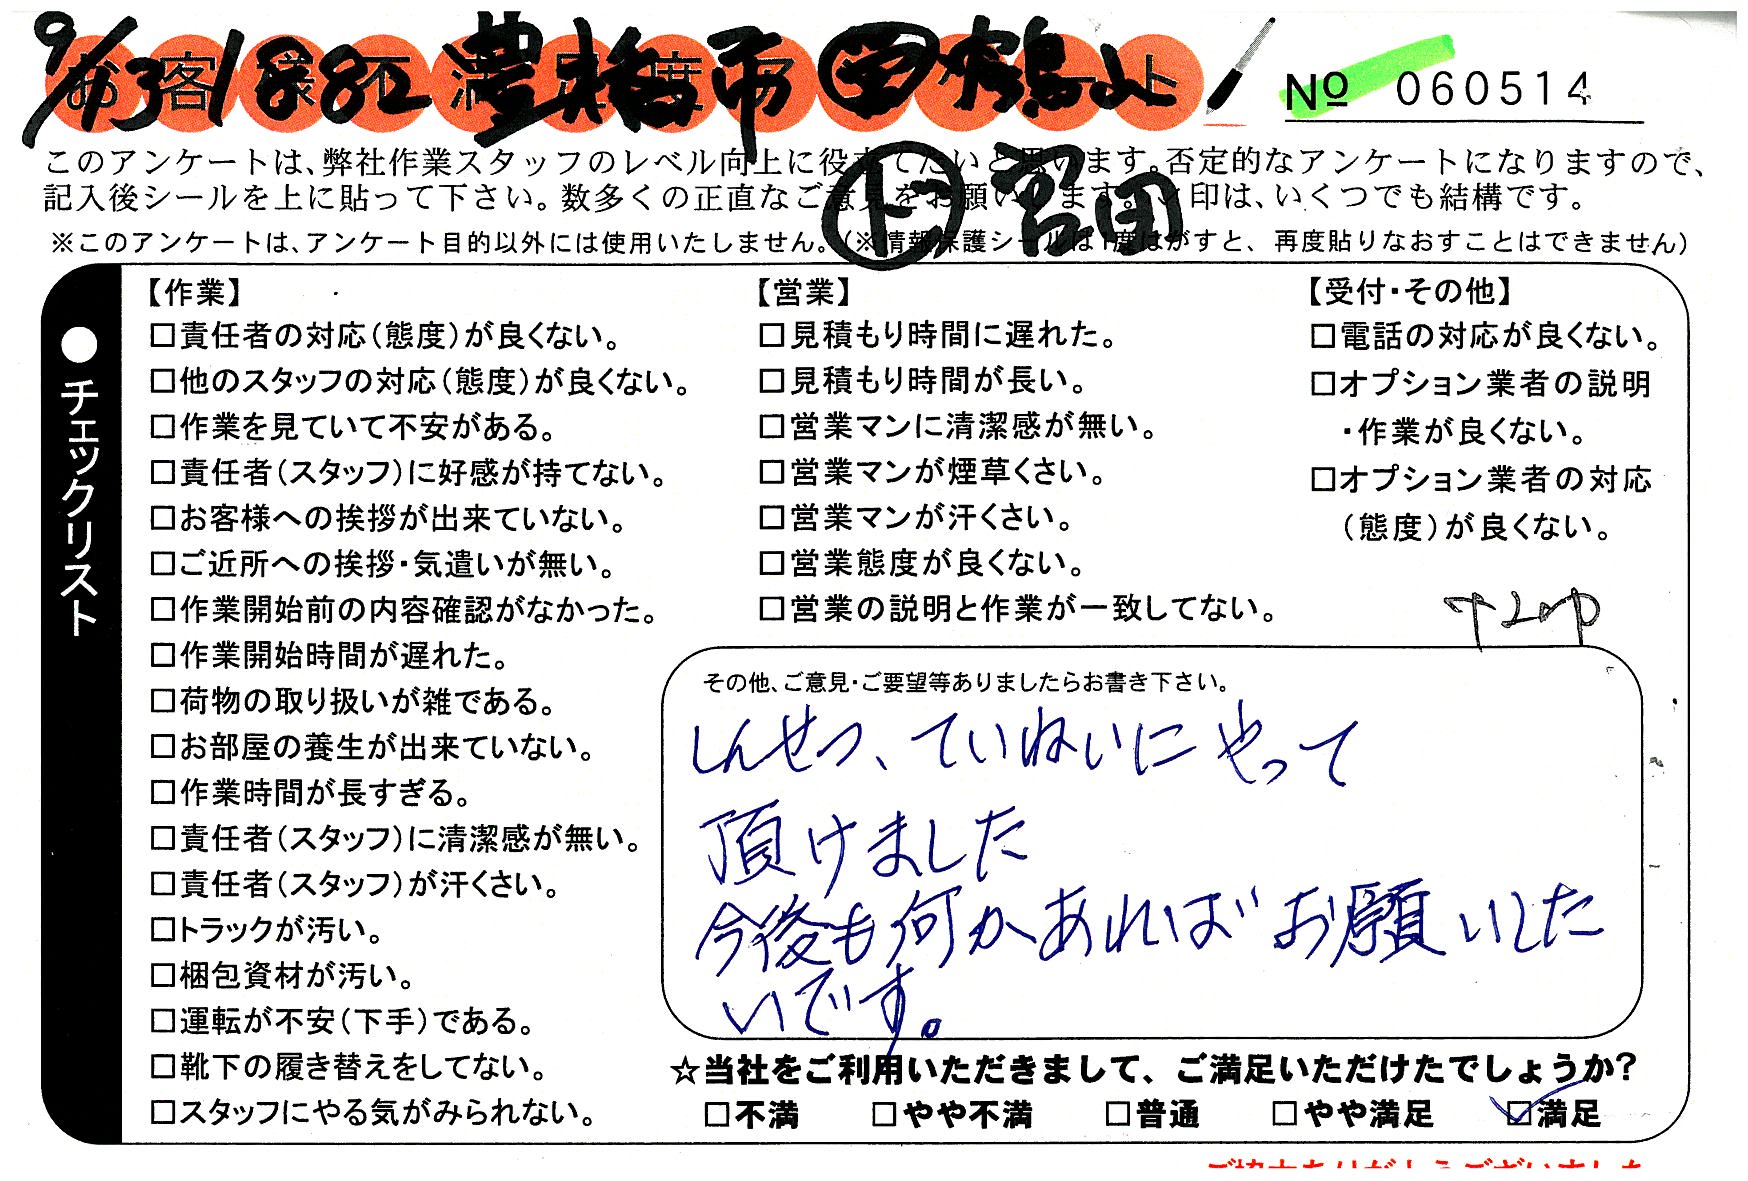 お客様不満足度アンケート
9/13 1882 豊橋市 鶴山
No 060514
このアンケートは、弊社作業スタッフのレベル向上に役立てたいと思います。否定的なアンケートになりますので、
記入後シールを上に貼って下さい。数多くの正直なご意見をお願いします。レ印は、いくつでも結構です。
ト 宮田
※このアンケートは、アンケート目的以外には使用いたしません。(※情報保護シールは1度はがすと、再度貼りなおすことはできません)
●チェックリスト
【作業】
□責任者の対応(態度)が良くない。
□他のスタッフの対応(態度)が良くない。
□作業を見ていて不安がある。
□責任者(スタッフ)に好感が持てない。
□お客様への挨拶が出来ていない。
□ご近所への挨拶・気遣いが無い。
□作業開始前の内容確認がなかった。
□作業開始時間が遅れた。
□荷物の取り扱いが雑である。
□お部屋の養生が出来ていない。
□作業時間が長すぎる。
□責任者(スタッフ)に清潔感が無い。
□責任者(スタッフ)が汗くさい。
□トラックが汚い。
□梱包資材が汚い。
□運転が不安(下手)である。
□靴下の履き替えをしてない。
□スタッフにやる気がみられない。
【営業】
□見積もり時間に遅れた。
□見積もり時間が長い。
□営業マンに清潔感が無い。
□営業マンが煙草くさい。
□営業マンが汗くさい。
□営業態度が良くない。
□営業の説明と作業が一致してない。
【受付・その他】
□電話の対応が良くない。
□オプション業者の説明
・作業が良くない。
□オプション業者の対応
(態度)が良くない。
その他、ご意見・ご要望等ありましたらお書き下さい。
しんせつ、ていねいにやって
頂けました
今後も何かあればお願いした
いです。
☆当社をご利用いただきまして、ご満足いただけたでしょうか?
□不満 □やや不満 □普通 □やや満足 ☑満足
ご協力ありがとうございました